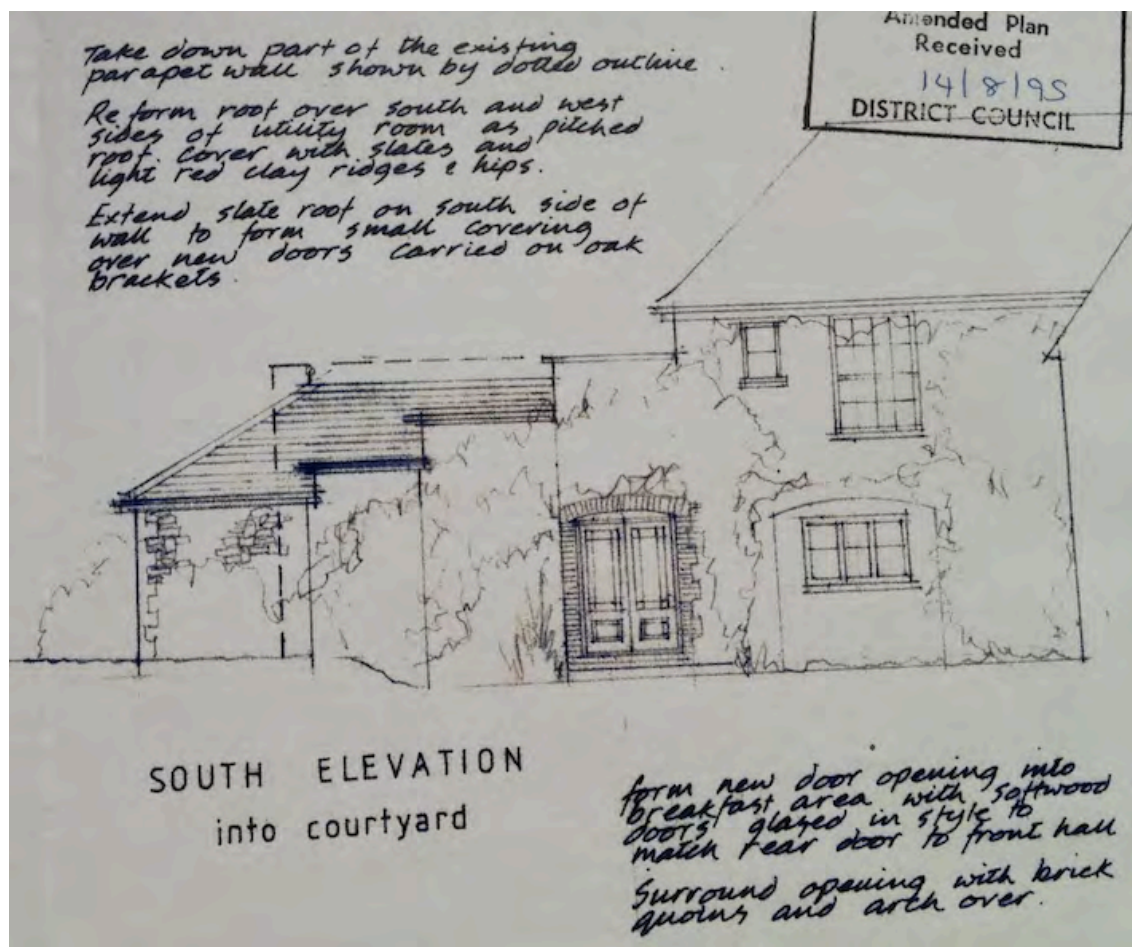 Take down part of the existing
parapet wall shown by dotted outline.
Re form roof over south and west
sides of utility room as pitched
roof. Cover with slates and
light red clay ridges & hips.
Extend slate roof on south side of
wall to form small covering
over new doors carried on oak
brackets.
Amended Plan
Received
14/8/95
DISTRICT COUNCIL
SOUTH ELEVATION
into courtyard
form new door opening into
breakfast area with softwood
doors glazed in style to
match rear door to front hall
Surround opening with brick
quoins and arch over.